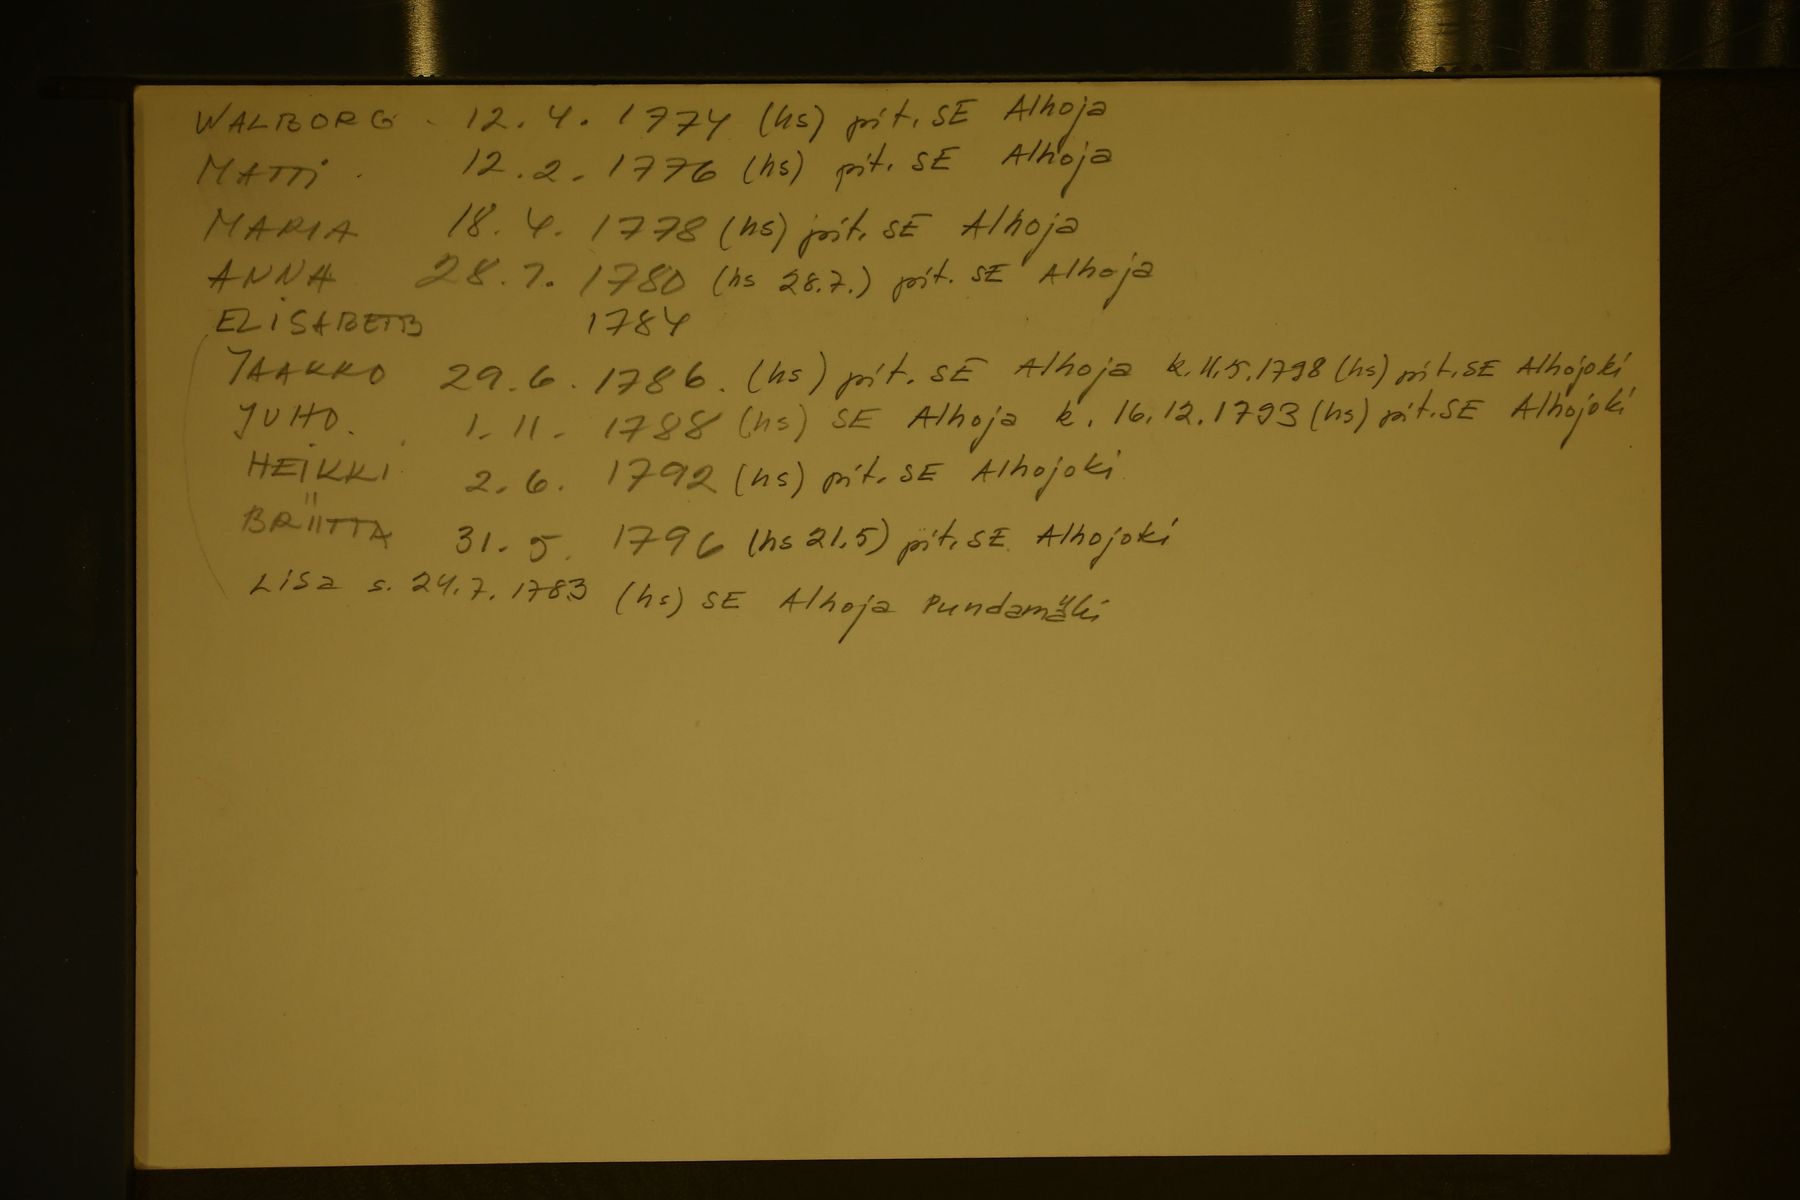 WALBORG 12.4.1774 (hs) pit. SE Alhoja
MATTI 12.2.1776 (hs) pit. SE Alhoja
MARIA 18.4.1778 (hs) pit. SE Alhoja
ANNA 28.7.1780 (hs 28.7.) pit. SE Alhoja
ELISABETB 1784
JAAKKO 29.6.1786. (hs) pit. SE Alhoja k.11.5.1798 (hs) pit. SE Alhojoki
JUHO. 1.11.1788 (hs) SE Alhoja k. 16.12.1793 (hs) pit. SE Alhojoki
HEIKKI 2.6.1792 (hs) pit. SE Alhojoki
BRIITTA 31.5.1796 (hs 21.5) pit. SE Alhojoki
Lisa s. 24.7.1783 (hs) SE Alhoja Pundamäki